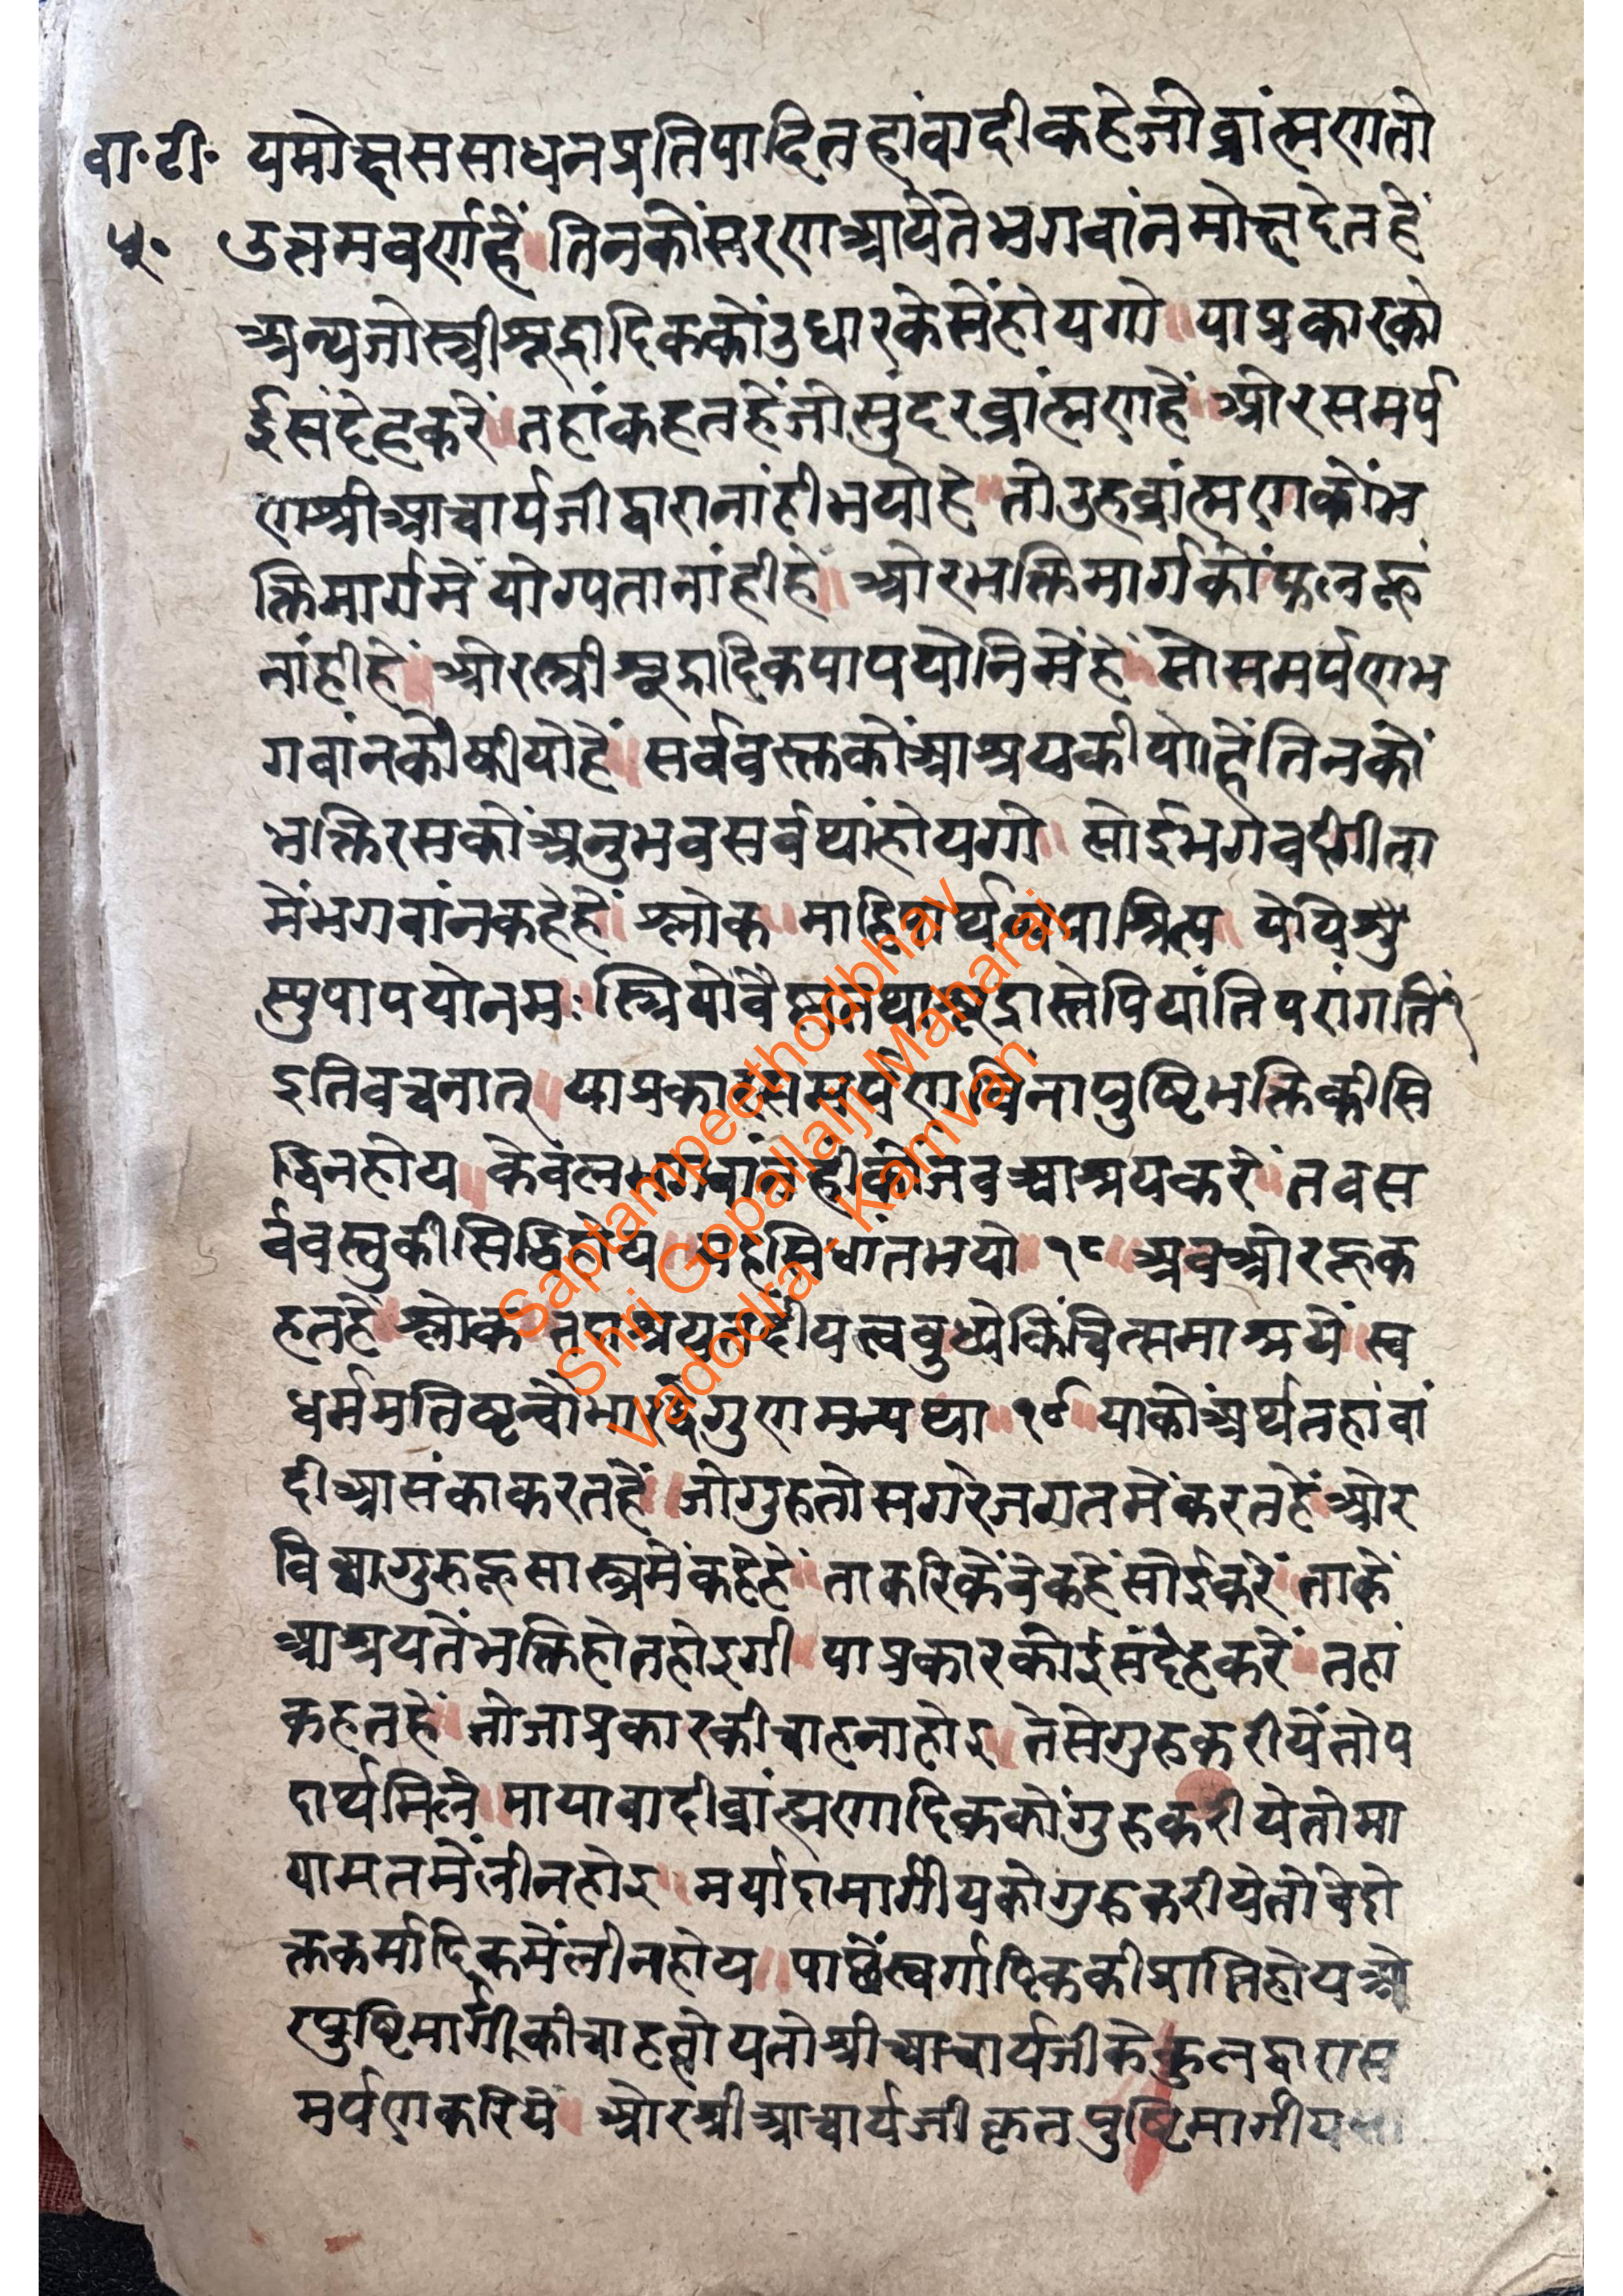 वा॰टी॰ यमोक्षससाधनप्रतिपादितहांवादीकहेजोब्रांत्मणतो
५॰ उत्तमवर्णहें॥तिनकोंसरणआयेतेभगवांनमोक्षदेतहें
अन्यजोस्त्रीशूद्रादिककोंउधारकेसेंहोयगो॥याप्रकारको
ईसंदेहकरें॥तहांकहतहेंजोसुंदरब्रांत्मणहें॥ओरसमर्प
णश्रीआचार्यजीद्वारानांहीभयोहे॥तोउहब्रांत्मणकोंभ
क्तिमार्गमेंयोग्यतानांहीहे॥ओरभक्तिमार्गकोंफलहू
नांहीहें॥ओरस्त्रीशूद्रादिकपापयोनिमेंहें॥सोसमर्पणभ
गवांनकोंकीयोहें॥सर्ववस्तकोंआश्रयकीयोहेंतिनकों
भक्तिरसकोंअनुभवसर्वथांहोयगो॥सोईभगवद्गीता
मेंभगवांनकहेहें॥श्लोक॥मांहिपार्थव्यपाश्रित्य॥येपिशु
स्युपापयोनमः॥स्त्रियोवैश्यातथाशूद्रास्तेपियांतिपरांगतिं१
इतिवचनात्॥याप्रकारसमर्पणविनापुष्टिभक्तिकीसि
द्धिनहोय॥केवलभगवांनहीकोजवआश्रयकरे॥तवस
र्ववस्तुकीसिद्धिहोय॥यहसिधांतभयो॥१८॥अवओरहूक
हतहें॥श्लोक॥तदाश्रयतदीयत्वबुध्येकिंचित्समाश्रये॥स्व
धर्ममतिष्टन्वोभारद्विगुणमन्यथा॥१९॥याकोंअर्थतहांवां
दीआसंकाकरतहें॥जोगुरुतोसगरेजगतमेंकरतहें॥ओर
विद्यागुरुहूसास्त्रमेंकहेहें॥ताकरिकेंवेकहेंसोईकरें॥ताकें
आश्रयतेंभक्तिहोतहोइगी॥याप्रकारकोईसंदेहकरें॥तहां
कहतहें॥जोजाप्रकारकीचाहनाहोइ॥तेसेगुरुकरीयेंतोप
दार्थमिलें॥मायावादीब्रांत्मणादिककोंगुरुकरीयेतोमा
यामतमेंलीनहोइ॥मर्यादामार्गीयकोगुरुकरीयेतोवेदो
क्तकर्मादिकमेंलीनहोय॥पाछेंस्वर्गादिककीप्राप्तिहोयओ
रपुष्टिमार्गीकीचाहहोयतोश्रीआचार्यजीकेकुलद्वारास
मर्पणकरिये॥ओरश्रीआचार्यजीकृतपुष्टिमार्गीय
Saptampeethodbhav
Shri Gopallalji Maharaj
Vadodra - Kamvan